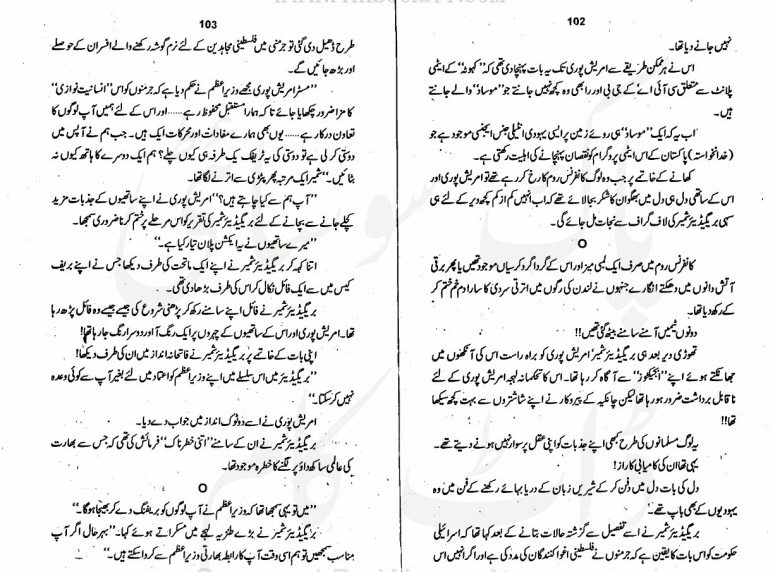 102
نہیں جانے دیا تھا۔
اس نے ہر ممکن طریقے سے امریش پوری تک یہ بات پہنچا دی تھی کہ ”کہوٹہ“ کے ایٹمی
پلانٹ سے متعلق سی آئی اے کے جی بی اور را بھی وہ کچھ نہیں جانتے جو ”موساد“ والے جانتے
ہیں۔
اب یہ کہ ایک ”موساد“ ہی روئے زمین پر ایسی یہودی انٹیلی جنس ایجنسی موجود ہے جو
(خدانخواستہ) پاکستان کے اس ایٹمی پروگرام کو نقصان پہنچانے کی اہلیت رکھتی ہے۔
کھانے کے خاتمے پر جب وہ لوگ کانفرنس روم کا رخ کر رہے تھے تو امریش پوری اور
اس کے ساتھی دل ہی دل میں بھگوان کا شکر بجا لائے تھے کہ اب انہیں کم از کم کچھ دیر کے لئے ہی
سہی بریگیڈیئر شمیر کی لاف گراف سے نجات مل جائے گی۔
O
کانفرنس روم میں صرف ایک لمبی میز اور اس کے گرد اگرد کرسیاں موجود تھیں یا پھر برقی
آتش دانوں میں دھکتے انگارے جنہوں نے لندن کی رگوں میں اترتی سردی کا سارا دم خم ختم کر
کے رکھ دیا تھا۔
دونوں ٹیمیں آمنے سامنے بیٹھ گئی تھیں!!
تھوڑی دیر بعد ہی بریگیڈیئر شمیر امریش پوری کو براہ راست اس کی آنکھوں میں
جھانکتے ہوئے اپنے سے آگاہ کر رہا تھا۔ اس کا تحکمانہ لہجہ امریش پوری کے لئے
ناقابل برداشت ضرور ہو رہا تھا لیکن چانکیہ کے پیروکار نے اپنے شاشتروں سے بہت کچھ سیکھا
تھا!!
یہ لوگ مسلمانوں کی طرح کبھی اپنے جذبات کو اپنی عقل پر سوار نہیں ہونے دیتے تھے۔
یہی تھا ان کی کامیابی کا راز!
دل کی بات دل میں دفن کر کے شیریں زبان کے دریا بہائے رکھنے کے فن میں وہ
یہودیوں کے بھی باپ تھے۔
بریگیڈیئر شمیر نے اسے تفصیل سے گزشتہ حالات بتانے کے بعد کہا تھا کہ اسرائیلی
حکومت کو اس بات کا یقین ہے کہ جرمنوں نے فلسطینی اغوا کنندگان کی مدد کی ہے اور اگر انہیں اس
103
طرح ڈھیل دی گئی تو جرمنی میں فلسطینی مجاہدین کے لئے نرم گوشہ رکھنے والے افسران کے حوصلے
اور بڑھ جائیں گے۔
”مسٹر امریش پوری مجھے وزیراعظم نے حکم دیا ہے کہ جرمنوں کو اس ”انسانیت نوازی“
کا مزا ضرور چکھایا جائے تاکہ ہمارا مستقبل محفوظ رہے ...... اور اس کے لئے ہمیں آپ لوگوں کا
تعاون درکار ہے ...... یوں بھی ہمارے مفادات اور محرکات ایک ہیں۔ جب ہم نے آپس میں
دوستی کر لی ہے تو دوستی کی یہ ٹریفک یک طرفہ ہی کیوں چلے؟ ہم ایک دوسرے کا ہاتھ کیوں نہ
بٹائیں۔“ شمیر ایک مرتبہ پھر پٹڑی سے اترنے لگا تھا۔
”آپ ہم سے کیا چاہتے ہیں؟“ امریش پوری نے اپنے ساتھیوں کے جذبات مزید
کچلے جانے سے بچانے کے لئے بریگیڈیئر شمیر کی تقریر کو اس مرحلے پر ختم کرنا ضروری سمجھا۔
”میرے ساتھیوں نے یہ ایکشن پلان تیار کیا ہے۔“
اتنا کہہ کر بریگیڈیئر شمیر نے اپنے ایک ماتحت کی طرف دیکھا جس نے اپنے بریف
کیس میں سے ایک فائل نکال کر اس کی طرف بڑھا دی تھی۔
بریگیڈیئر شمیر نے فائل اپنے سامنے رکھ کر پڑھنی شروع کی جیسے جیسے وہ فائل پڑھ رہا
تھا۔ امریش پوری اور اس کے ساتھیوں کے چہروں پر ایک رنگ آ اور دوسرا رنگ جا رہا تھا!
اپنی بات کے خاتمے پر بریگیڈیئر شمیر نے فاتحانہ انداز میں ان کی طرف دیکھا!
”بریگیڈیئر میں اس سلسلے میں اپنے وزیراعظم کو اعتماد میں لئے بغیر آپ سے کوئی وعدہ
نہیں کر سکتا۔“
امریش پوری نے اسے دو ٹوک انداز میں جواب دے دیا۔
بریگیڈیئر شمیر نے ان کے سامنے ”اتنی خطرناک“ فرمائش کی تھی کہ جس سے بھارت
کی عالمی ساکھ داؤ پر لگنے کا خطرہ موجود تھا۔
O
”میں تو یہی سمجھا تھا کہ وزیراعظم نے آپ لوگوں کو بریفنگ دے کر بھیجا ہوگا۔“
بریگیڈیئر شمیر نے بڑے طنزیہ لہجے میں مسکراتے ہوئے کہا۔ ”بہرحال اگر آپ
مناسب سمجھیں تو ہم اسی وقت آپ کا رابطہ بھارتی وزیراعظم سے کروا سکتے ہیں۔“